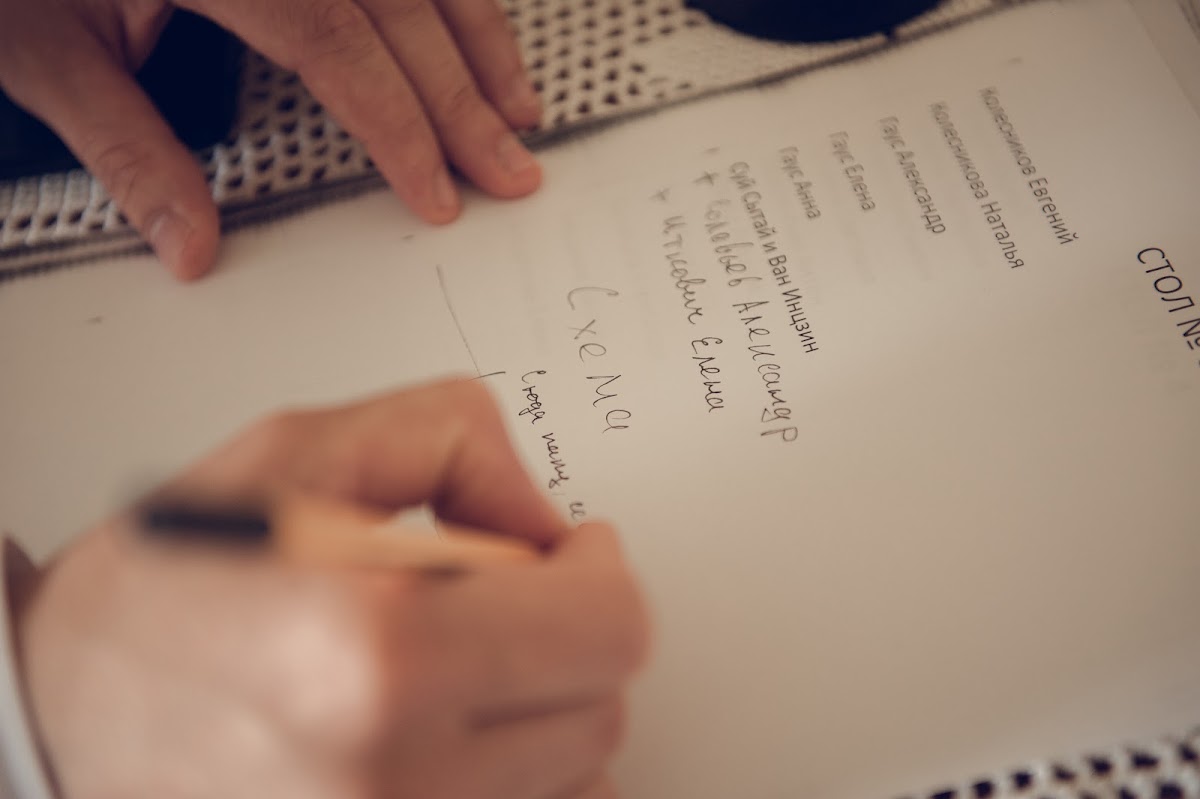 СТОЛ №
Колесников Евгений
Колесникова Наталья
Гаус Александр
Гаус Елена
Гаус Анна
Суй Сытай и Ван Инцзин
+ Соловьев Александр
+ Иткович Елена
Схема
Сюда